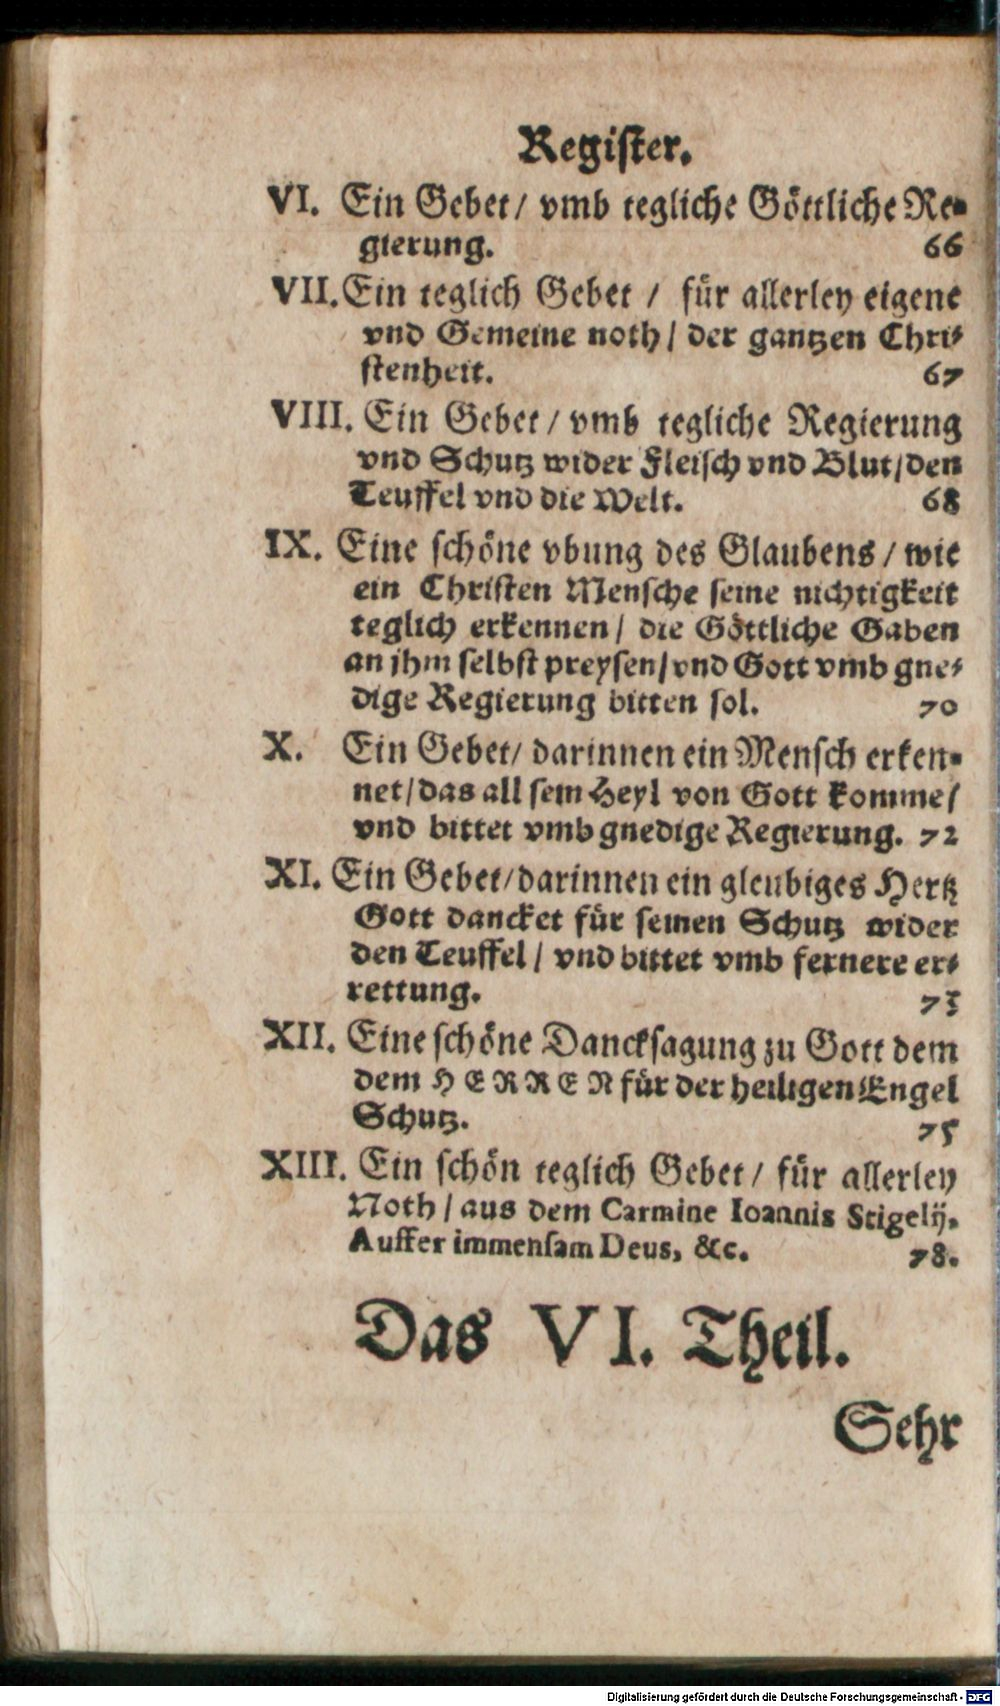 Register.
VI. Ein Gebet / vmb tegliche Göttliche Re-
gierung. 66
VII. Ein teglich Gebet / für allerley eigene
vnd Gemeine noth / der gantzen Chri-
stenheit. 67
VIII. Ein Gebet / vmb tegliche Regierung
vnd Schutz wider Fleisch vnd Blut / den
Teuffel vnd die Welt. 68
IX. Eine schöne vbung des Glaubens / wie
ein Christen Mensche seine nichtigkeit
teglich erkennen / die Göttliche Gaben
an jhm selbst preysen / vnd Gott vmb gne-
dige Regierung bitten sol. 70
X. Ein Gebet / darinnen ein Mensch erken-
net / das all sein Heyl von Gott komme /
vnd bittet vmb gnedige Regierung. 72
XI. Ein Gebet / darinnen ein gleubiges Hertz
Gott dancket für seinen Schutz wider
den Teuffel / vnd bittet vmb fernere er-
rettung. 73
XII. Eine schöne Dancksagung zu Gott dem
dem HERREN für der heiligen Engel
Schutz. 75
XIII. Ein schön teglich Gebet / für allerley
Noth / aus dem Carmine Ioannis Stigelij.
Auffer immensam Deus, &c. 78.
Das VI. Theil.
Sehr
Digitalisierung gefördert durch die Deutsche Forschungsgemeinschaft - DFG